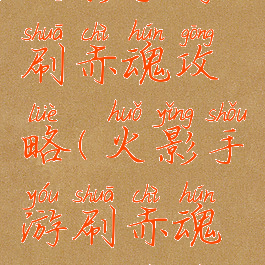 shuā chì hún gōng
刷赤魂攻
lüè huǒ yǐng shǒu
略(火影手
yóu shuā chì hún
游刷赤魂